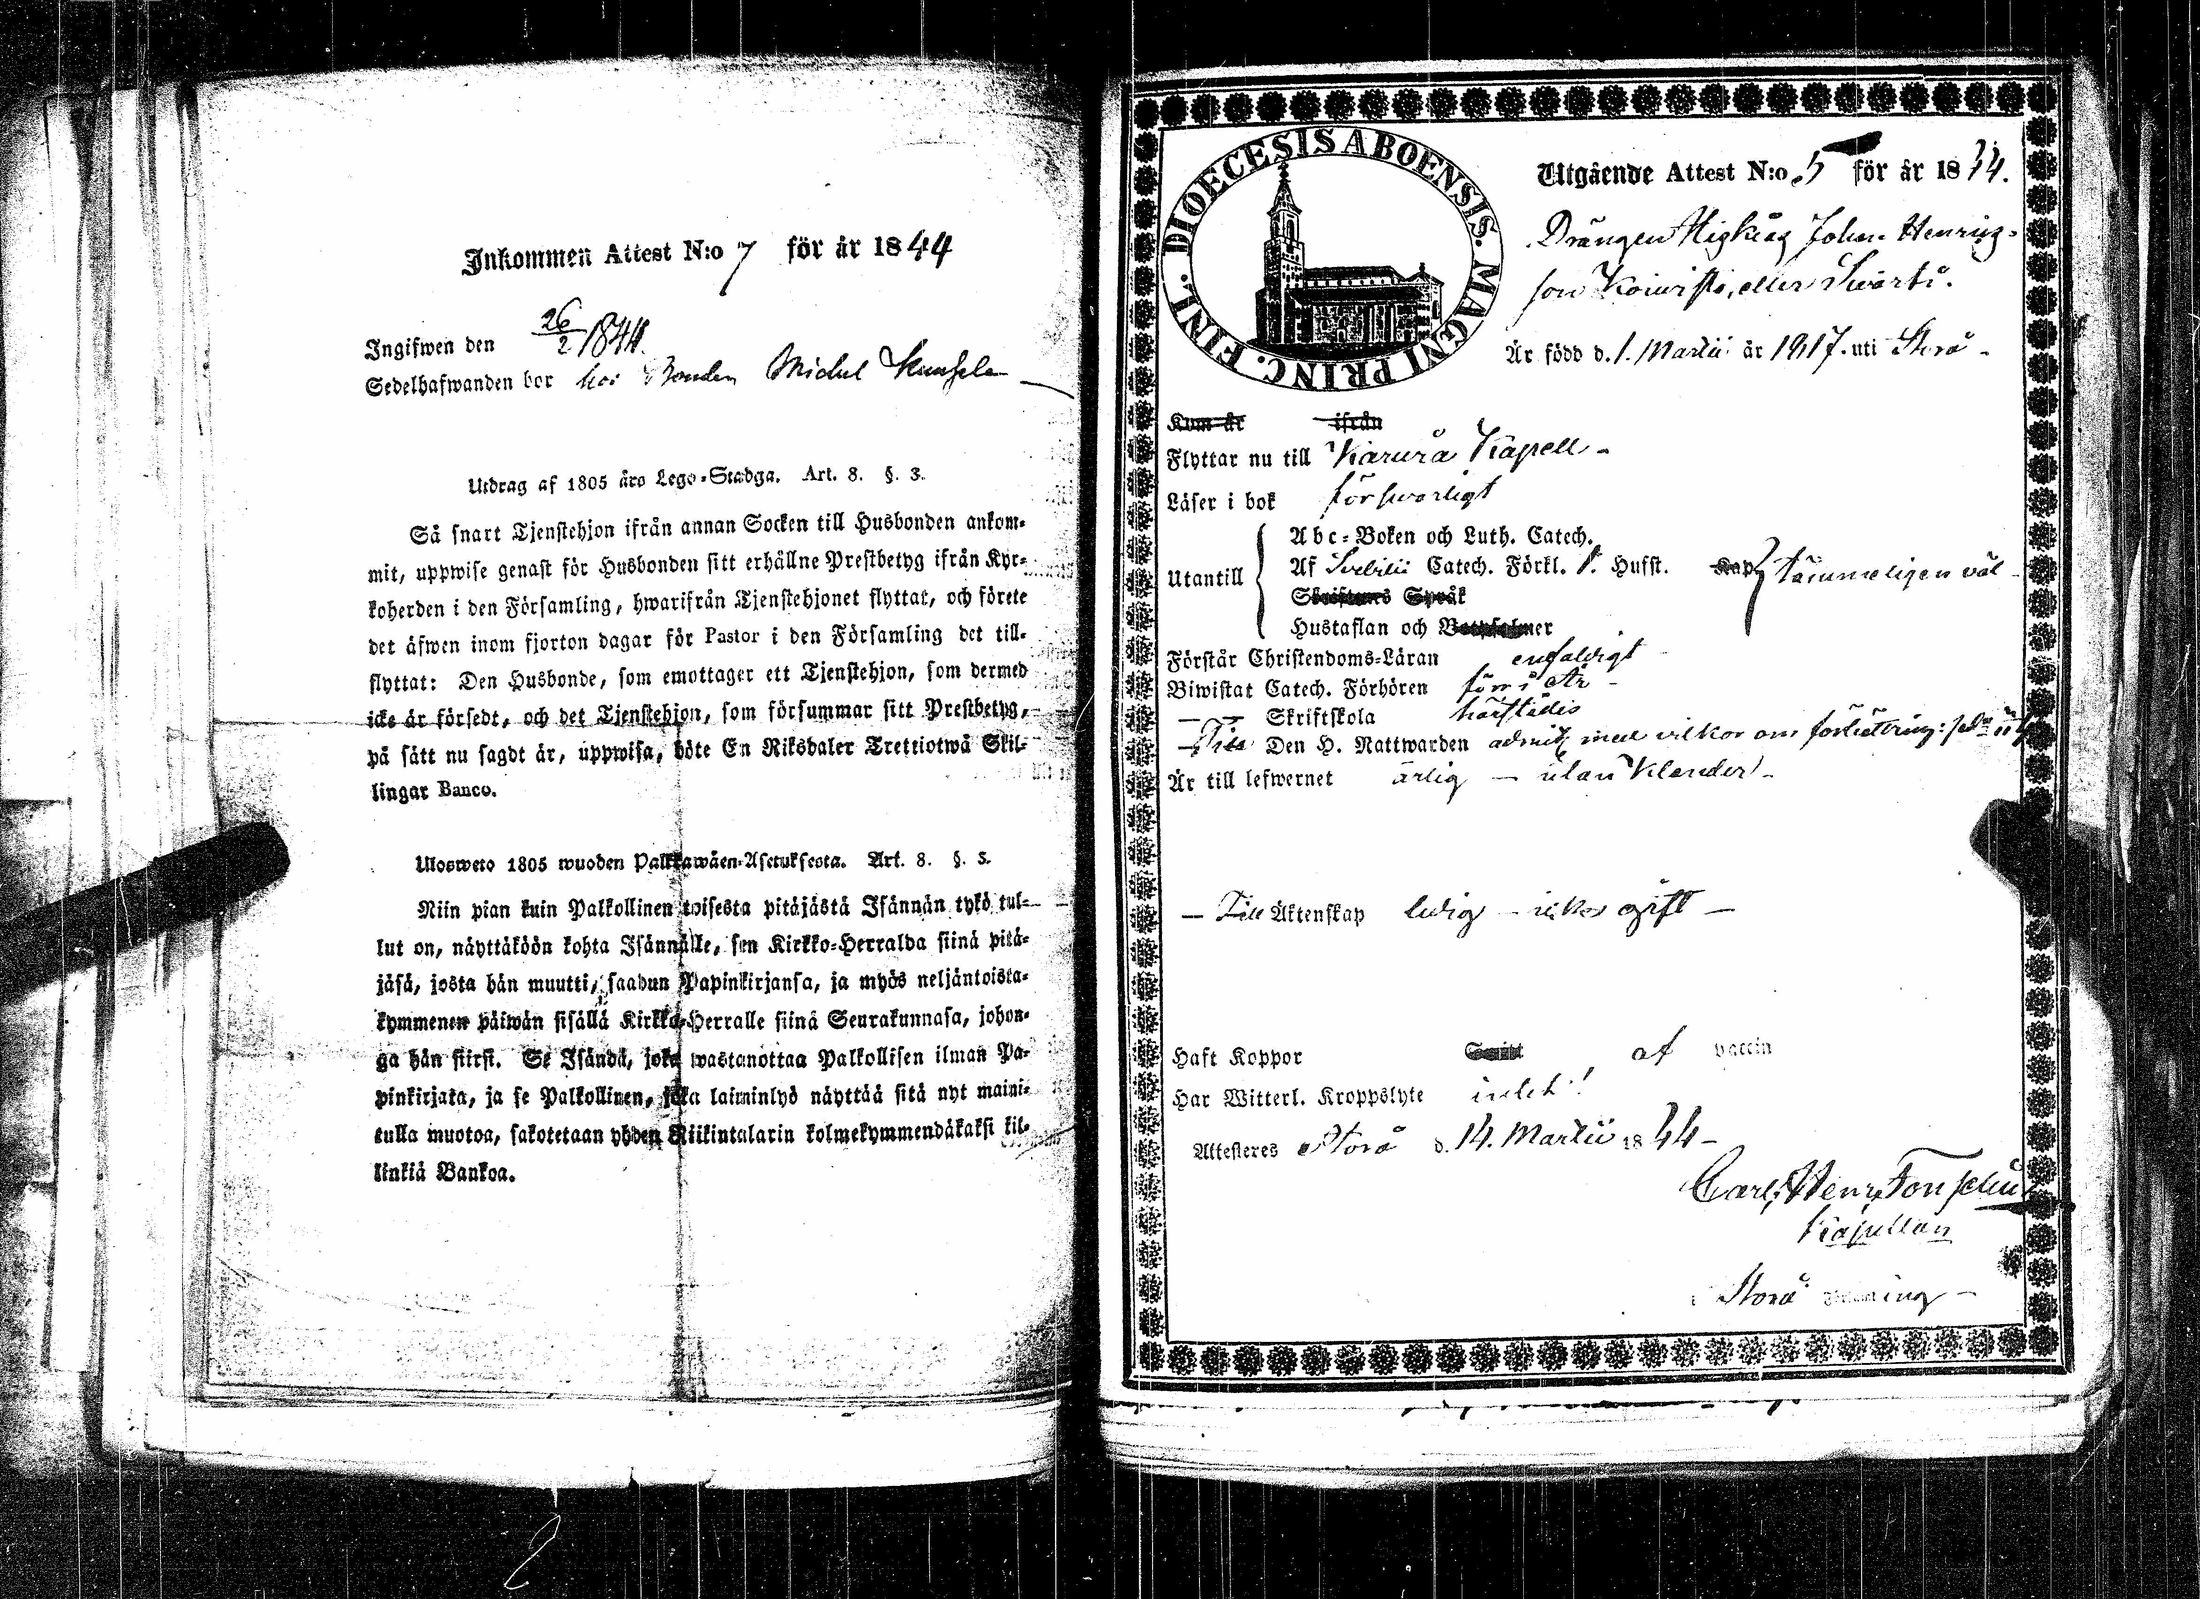 Inkommen Attest N:o 7 för år 1844
Ingifwen den 26/2 1844.
Sedelhafwanden bor hos Bonden Michel
Utdrag af 1805 års Lego-Stadga. Art. 8. §. 3.
Så snart Tjenstehjon ifrån annan Socken till Husbonden ankom-
mit, uppwise genast för Husbonden sitt erhållne Prestbetyg ifrån Kyr-
koherden i den Församling, hwarifrån Tjenstehjonet flyttat, och förete
det äfwen inom fjorton dagar för Pastor i den Församling det till-
flyttat: Den Husbonde, som emottager ett Tjenstehjon, som dermed
icke är försedt, och det Tjenstehjon, som försummar sitt Prestbetyg,
på sätt nu sagdt är, uppwisa, böte En Riksdaler Trettiotwå Skil-
lingar Banco.
Ulosweto 1805 wuoden Palkkawäen-Asetuksesta. Art. 8. §. 3.
Niin pian kuin Palkollinen toisesta pitäjästä Isännän tykö tul-
lut on, näyttäköön kohta Isännälle, sen Kirkko-Herralda siinä pitä-
jäsä, josta hän muutti, saadun Papinkirjansa, ja myös neljäntoista-
kymmenen päiwän sisällä Kirkko-Herralle siinä Seurakunnasa, johon-
ga hän siirsi. Se Isändä, joka wastanottaa Palkollisen ilman Pa-
pinkirjata, ja se Palkollinen, joka laiminlyö näyttää sitä nyt maini-
tulla muotoa, sakotetaan yhden Riikintalarin kolmekymmendäkaksi kil-
linkiä Bankoa.
DIOECESIS ABOENSIS. MAGNI PRINC. FINL.
Utgående Attest N:o 5 för år 1844.
Drängen Johan Henrics-
son Koivisto, eller Swarts.
Är född d. 1. Martii år 1817. uti Storå
Kom år ifrån
Flyttar nu till Karwia Kapell
Läser i bok försvarligt
Utantill
Abc-Boken och Luth. Catech.
Af Svebilii Catech. Förkl. Hufst. Kap
tämmeligen väl
Skriftenes Språk
Hustaflan och Botpsalmer
Förstår Christendoms-Läran enfaldigt
Biwistat Catech. Förhören förri År
Skriftskola härstädes
Till Den H. Nattwarden admitt. med vilkor om förbättring:
Är till lefwernet ärlig — utan klander
Till Äktenskap ledig — icke gift
Haft Koppor af vaccin
Har Witterl. Kroppslyte intet!
Attesteres Storå d. 14. Martii 1844
Carl Henr. Fonselius
Kapellan
i Storå